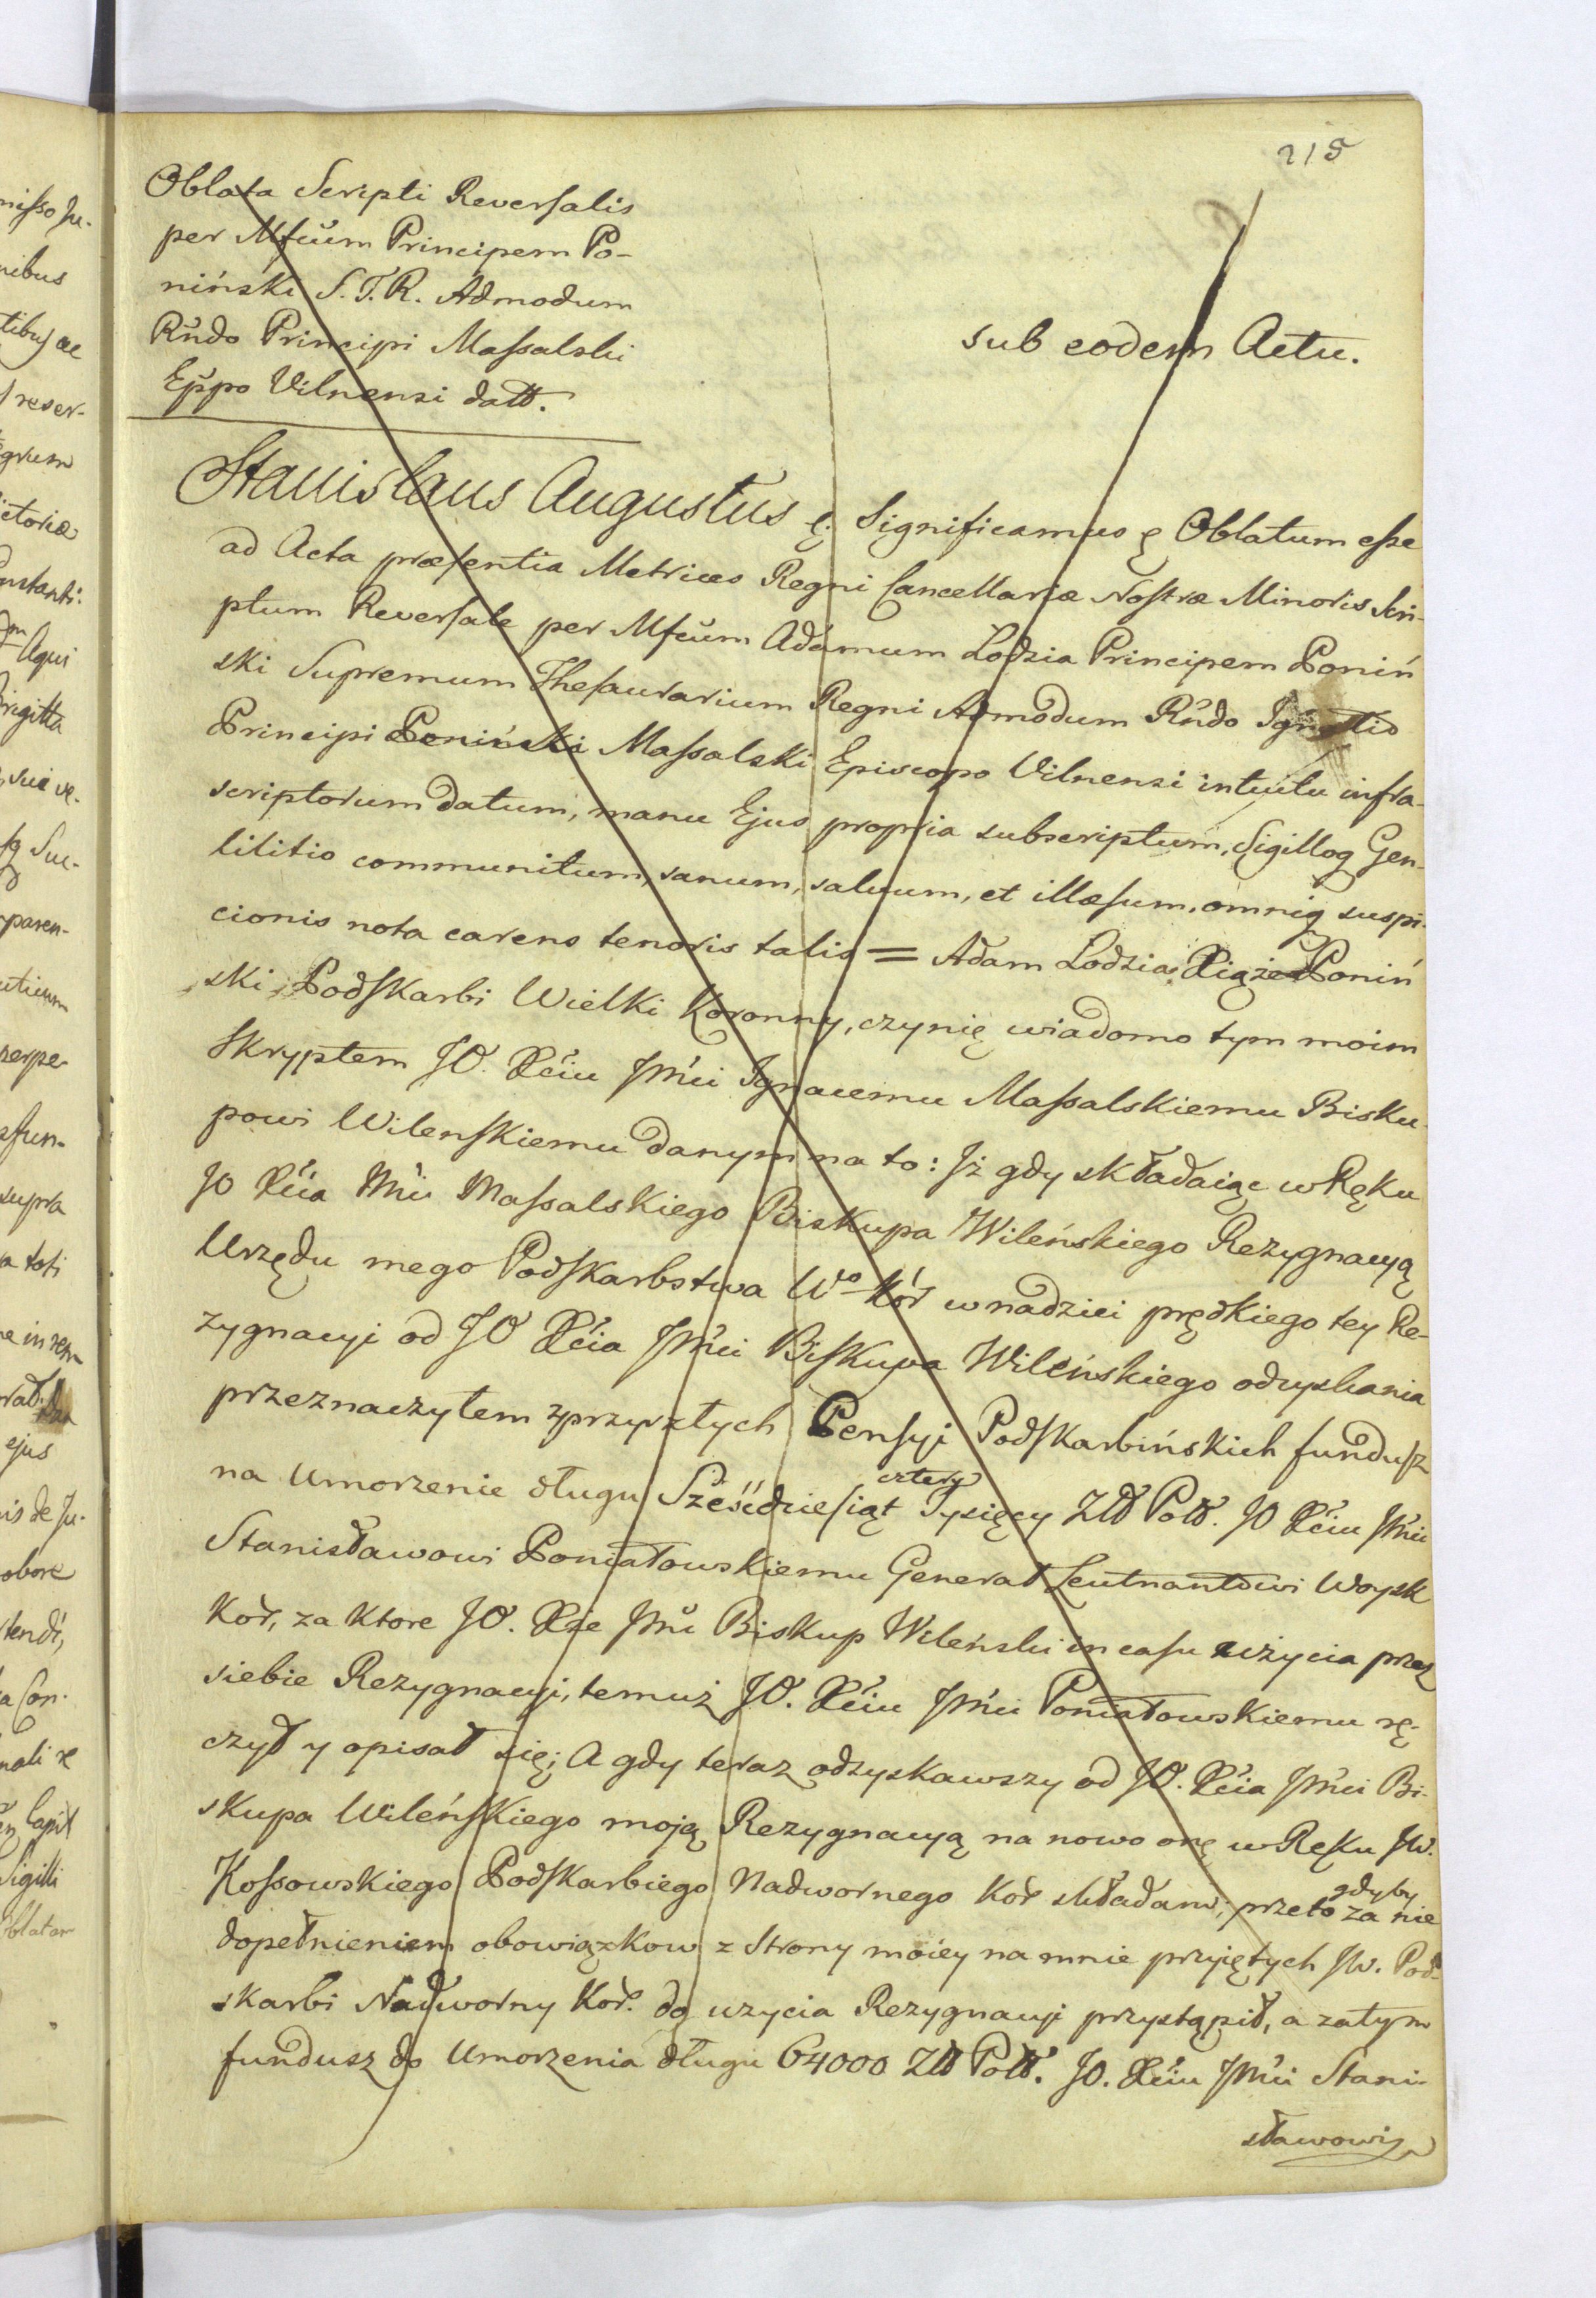 215
Oblata Scripti Reversalis
per Mfcum Principem Po-
niński S. T. R. Admodum
Rndo Principi Massalski
Eppo Vilnensi datt.
sub eodem Actu.
Stanislaus Augustus Significamus Oblatum esse
ad Acta præsentia Metrices Regni Cancellariæ Nostræ Minoris Scri-
ptum Reversale per Mfcum Adamum Lodzia Principem Poniń
ski Supremum Thesaurarium Regni Admodum Rndo Ignatio
Principi Poniński Massalski Episcopo Vilnensi intuitu infra-
scriptorum datum, manu Ejus propria subscriptum, Sigilloq Gen-
tilitio communitum, sanum, salvum, et illæsum, omniq suspi-
cionis nota carens tenoris talis = Adam Lodzia Xiąże Poniń
ski Podskarbi Wielki Koronny, czynię wiadomo tym moim
Skryptem JO. Xciu Jmci Ignacemu Massalskiemu Bisku-
powi Wilenskiemu danym na to: Jż gdy składaiąc w Ręku
JO Xcia Jmci Massalskiego Biskupa Wileńskiego Rezygnacyą
Urzędu mego Podskarbstwa Wo Kor w nadziei prędkiego tey Re-
zygnacyi od JO Xcia Jmci Biskupa Wileńskiego odzyskania
przeznaczyłem z przyszłych Pensyi Podskarbińskich fundusz
na Umorzenie długu Sześćdziesiąt cztery Tysięcy Złł Poll. JO Xciu Jmci
Stanisławowi Poniatowskiemu Generał Leutnantowi Woysk
Kor, za ktore JO. Xże Jmć Biskup Wileński in casu użycia przez
siebie Rezygnacyi, temuż JO. Xciu Jmci Poniatowskiemu rę-
czył y opisał się; A gdy teraz odzyskawszy od JO. Xcia Jmci Bi-
skupa Wileńskiego moją Rezygnacyą na nowo onę w Ręku JW.
Kossowskiego Podskarbiego Nadwornego Kor składam; przeto gdyby za nie
dopełnieniem obowiązkow z Strony moiey na mnie przyiętych JW. Pod-
skarbi Nadworny Kor. do uzycia Rezygnacyi przystąpił, a zatym
fundusz do Umorzenia długu 64000 Złł Poll. JO. Xciu Jmci Stani-
sławowi